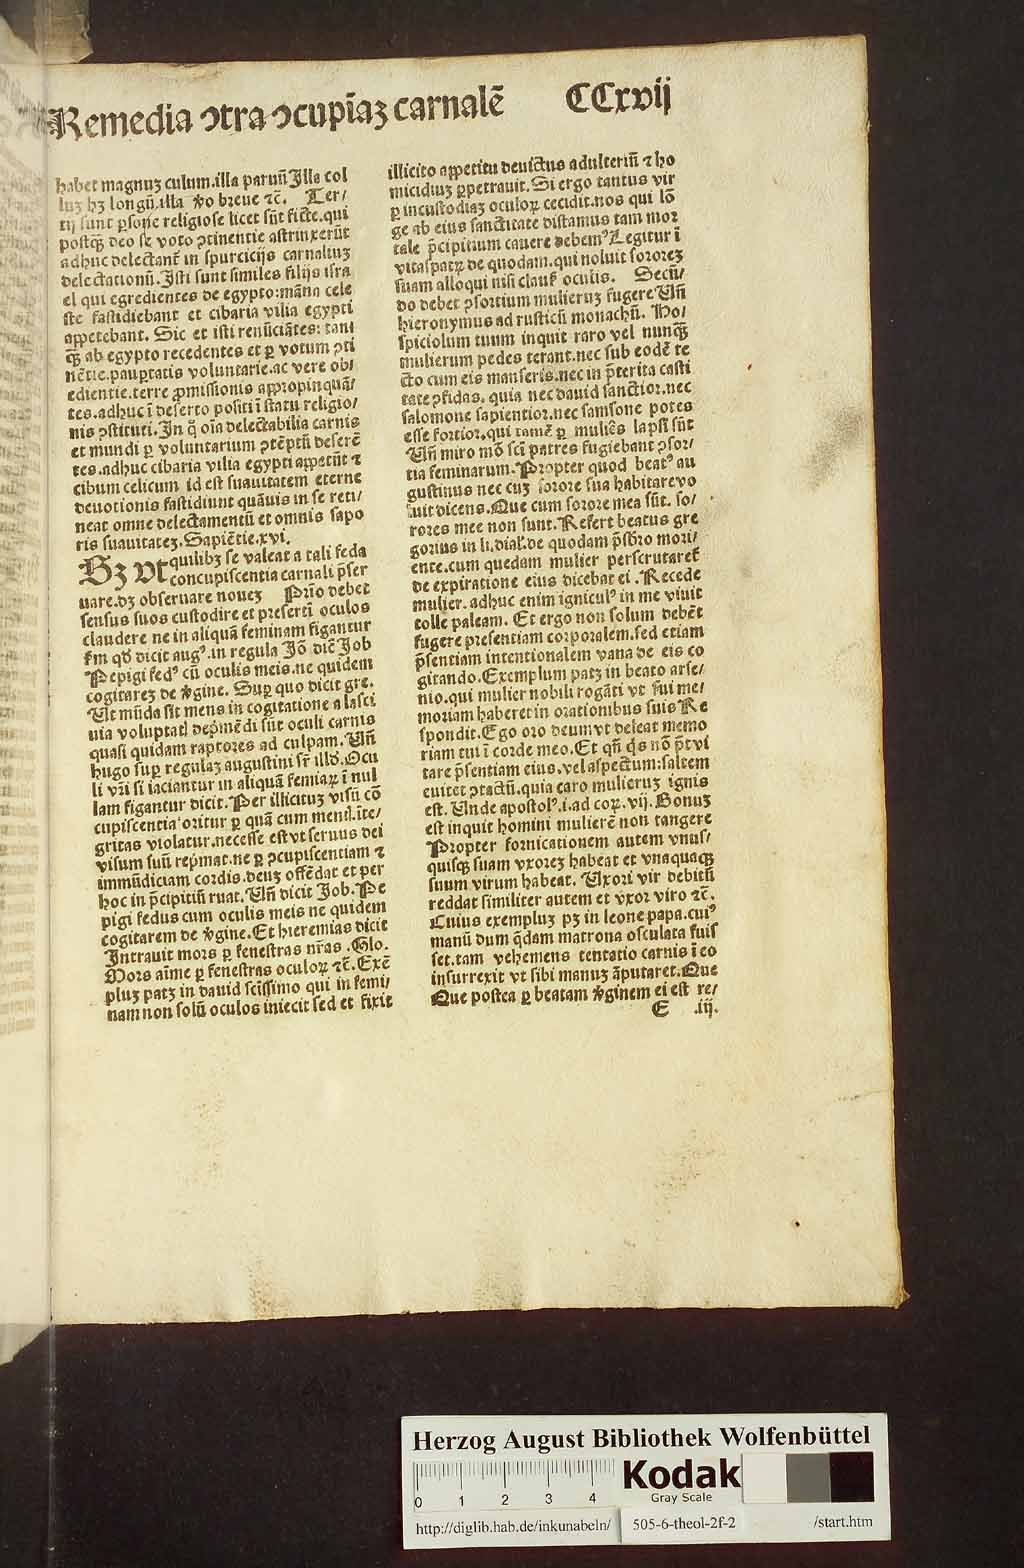 Remedia ꝯtra ꝯcupīaꝫ carnalē CCxvij
habet magnuꝫ culum.illa paruū Illa col
luꝫ hꝫ longū.illa ꝟo breue ⁊c̄. Ter/
tij sunt ꝑsone religiose licet sūt ficte.qui
postqꝫ deo se voto ꝯtinentie astrinxerūt
adhuc delectant̄ in spurcicijs carnaliuꝫ
delectationū. Isti sunt similes filijs isra
el qui egredientes de egypto:māna cele
ste fastidiebant et cibaria vilia egypti
appetebant. Sic et isti renūciātes: tanꝙ̄
qꝫ ab egypto recedentes et ꝑ votum ꝯti
nētie.pauꝑtatis voluntarie.ac vere obi/
edientie.terre ꝓmissionis appropinquā/
tes.adhuc ī deserto positi ī statu religio/
nis ꝯstituti. In q̄ oīa delectabilia carnis
et mundi ꝑ voluntarium ꝯtēptū deserē
tes.adhuc cibaria vilia egypti appetūt ⁊
cibum celicum id est suauitatem eterne
deuotionis fastidiunt quāuis in se reti/
neat omne delectamentū et omnis sapo
ris suauitateꝫ. Sapiētie.xvi.
Sꝫ vt quilibꝫ se valeat a tali feda
concupiscentia carnali p̄ser
uare.dꝫ obseruare noueꝫ Prīo debet
sensus suos custodire et presertī oculos
claudere ne in aliquā feminam figantur
km qd̄ dicit augꝰ.in regula Jō diē Job
Pepigi fedꝰ cū oculis meis.ne quidem
cogitareꝫ de ꝟgine. Suꝑ quo dicit gre.
Ut mūda sit mens in cogitatione a lasci
uia voluptatī dep̄mēdi sūt oculi carnis
quasi quidam raptores ad culpam. Un̄
hugo suꝑ regulaꝫ augustini sr̄ illd̄. Ocu
li vr̄i si iaciantur in aliquā femiaꝝ ī nul
lam figantur dicit. Per illicituꝫ visū cō
cupiscentia oritur ꝑ quā cum mentī.īte/
gritas violatur.necesse est vt seruus dei
visum suū rep̄mat.ne ꝑ ꝯcupiscentiam ⁊
immūdiciam cordis.deuꝫ offēdat et per
hoc in p̄cipitiū ruat. Un̄ dicit Job. Pe
pigi fedus cum oculis meis ne quidem
cogitarem de ꝟgine. Et hieremias dicit
Intrauit mors ꝑ fenestras nr̄as .Glo.
Mors aīme ꝑ fenestras oculoꝝ ⁊c̄. Exē
pluꝫ patꝫ in dauid sc̄issimo qui in femi/
nam non solū oculos iniecit sed et fixit
illicito appetitu deuictus adulteriū ⁊ ho
micidiuꝫ ꝑpetrauit. Si ergo tantus vir
ꝑ incustodiaꝫ oculoꝝ cecidit.nos qui lō
ge ab eius sanctitate distamus tam mor
tale p̄cipitium cauere debemꝰ Legitur ī
vitaspatꝝ de quodam.qui noluit sororeꝫ
suam alloqui nisi claus̄ oculis. Secū/
do debet ꝯsortium mulieruꝫ fugere Un̄
hieronymus ad rusticū monachū. Ho/
spiciolum tuum inquit raro vel nunqꝫ
mulierum pedes terant.nec sub eodē te
cto cum eis manseris.nec in p̄terita casti
tate ꝯfidas. quia nec dauid sanctior.nec
salomone sapientior.nec samsone potes
esse fortior.qui tamē ꝑ muliēs lapsi sūt
Un̄ miro mō sc̄i patres fugiebant ꝯsor/
tia feminarum. Propter quod beatꝰ au
gustinus nec cuꝫ sorore sua habitare vo
luit dicens. Que cum sorore mea sūt. so/
rores mee non sunt. Refert beatus gre
gorius in li.dial̄.de quodam p̄sbro mori/
ente.cum quedam mulier perscrutaret̄
de expiratione eius dicebat ei . Recede
mulier. adhuc enim igniculꝰ in me viuit
tolle paleam. Et ergo non solum debēt
fugere presentiam corporalem.sed etiam
p̄sentiam intentionalem vana de eis co
gitando. Exemplum patꝫ in beato arse/
nio.qui mulier nobili rogāti vt sui me/
moriam haberet in orationibus suis Re
spondit. Ego oro deum vt deleat memo
riam tui ī corde meo. Et qn̄ q̄s nō p̄t vi
tare p̄sentiam eius.vel aspectum:saltem
euitet ꝯtactū.quia caro mulieruꝫ ignis
est. Unde apostolꝰ.i.ad coꝝ.vij. Bonuꝫ
est inquit homini mulierē non tangere
Propter fornicationem autem vnus/
quisqꝫ suam vxoreꝫ habeat et vnaquaqꝫ
suum virum habeat. Uxori vir debitū
reddat similiter autem et vxor viro ⁊c̄.
Cuius exempluꝫ pꝫ in leone papa.cuiꝰ
manū dum q̄dam matrona osculata fuis
set.tam vehemens tentatio carnis ī eo
insurrexit vt sibi manuꝫ āputaret. Que
Que postea ꝑ beatam ꝟginem ei est re/
E .iij.
Herzog August Bibliothek Wolfenbüttel
0 1 2 3 4
Kodak
Gray Scale
http://diglib.hab.de/inkunabeln/ 505-6-theol-2f-2 /start.htm